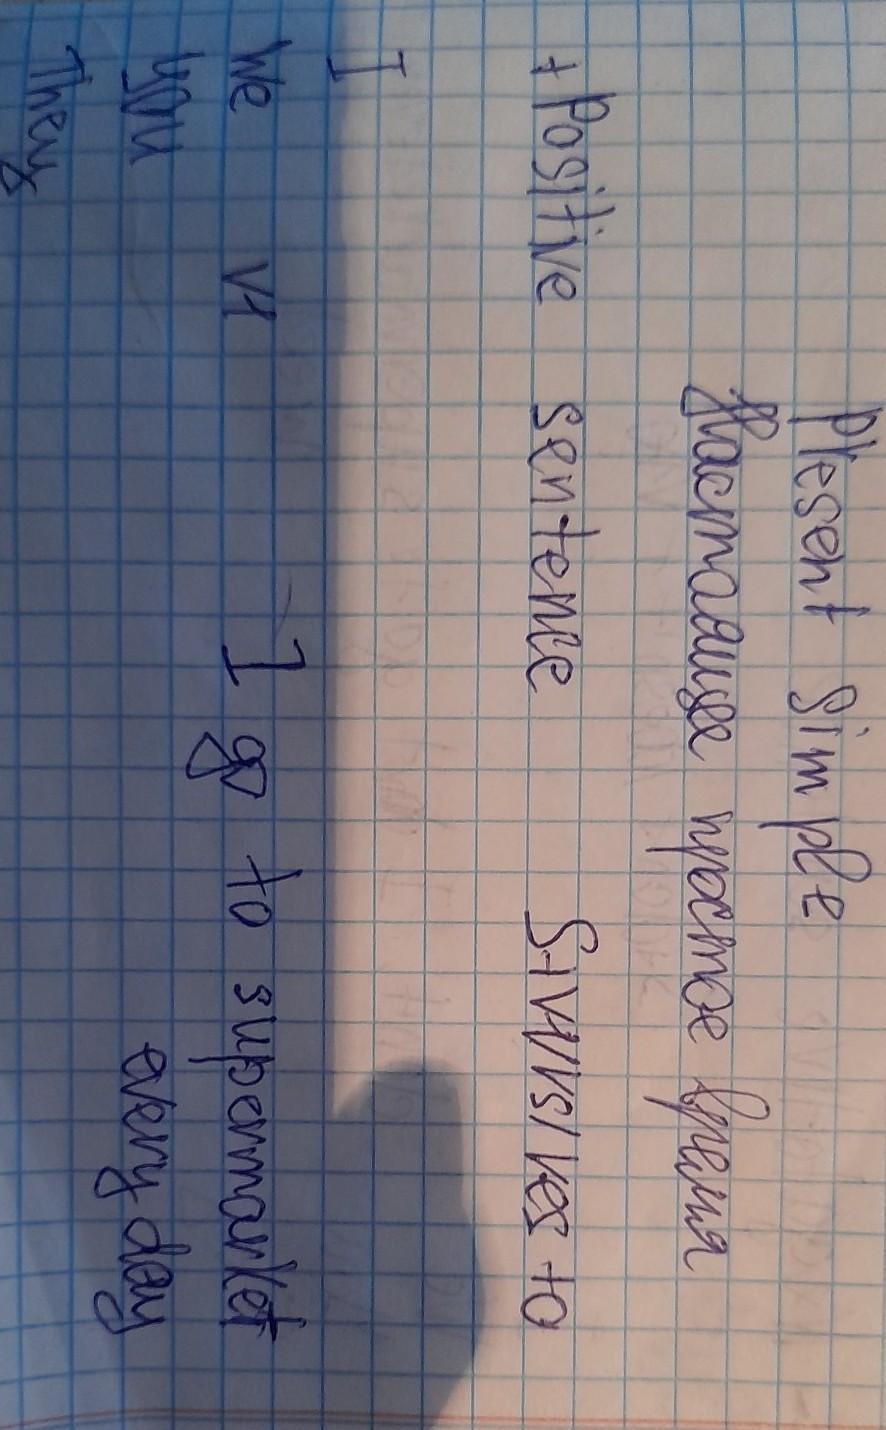 Present Simple
Настоящее простое время
+ Positive sentence S+V1/Vs/Ves+O
I
We V1 I go to supermarket
you every day
They